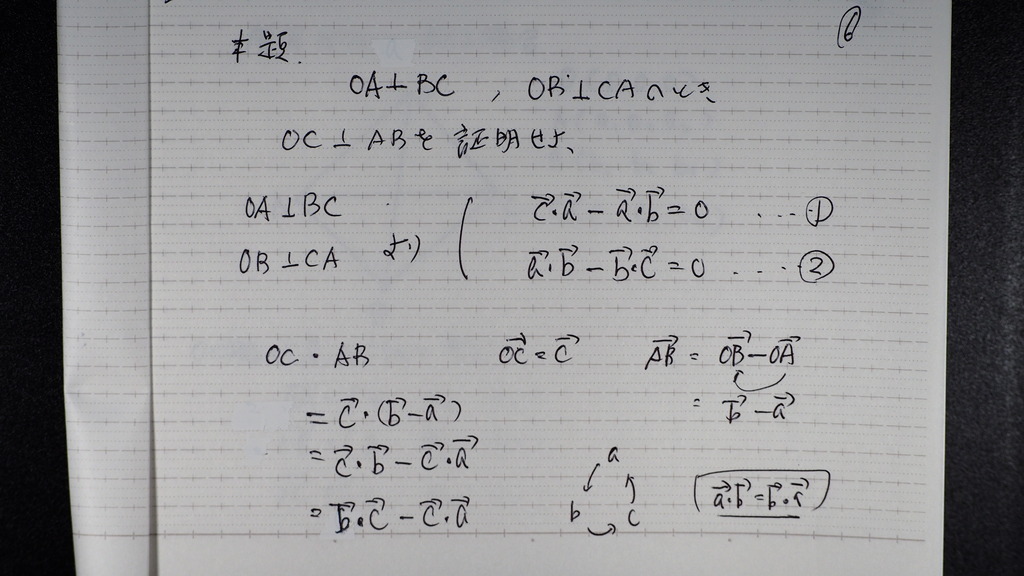 ⑥
本題.
OA⊥BC , OB⊥CAのとき
OC⊥ABを証明せよ、
OA⊥BC
OB⊥CA より
c⃗・a⃗ − a⃗・b⃗ = 0 ・・・・①
a⃗・b⃗ − b⃗・c⃗ = 0 ・・・・②
OC・AB OC⃗ = c⃗ AB⃗ = OB⃗ − OA⃗
= c⃗・(b⃗ − a⃗) = b⃗ − a⃗
= c⃗・b⃗ − c⃗・a⃗
= b⃗・c⃗ − c⃗・a⃗
a
b c
a⃗・b⃗ = b⃗・a⃗